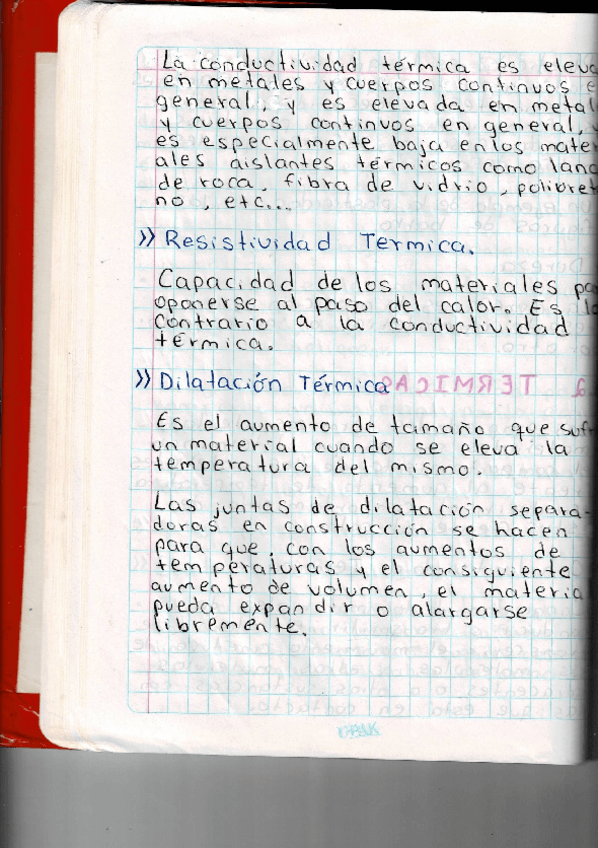 La conductividad térmica es eleva
en metales y cuerpos continuos e
general, y es elevada en metal
y cuerpos continuos en general, y
es especialmente baja en los mater
ales aislantes térmicos como lana
de roca, fibra de vidrio, polibret
no, etc...
» Resistividad Termica.
Capacidad de los materiales pa
oponerse al paso del calor. Es lo
contrario a la conductividad
térmica.
» Dilatación Térmica
Es el aumento de tamaño que sufr
un material cuando se eleva la
temperatura del mismo.
Las juntas de dilatación separa-
doras en construcción se hacen
para que, con los aumentos de
temperaturas y el consiguiente
aumento de volumen, el materia
pueda expandir o alargarse
libremente.